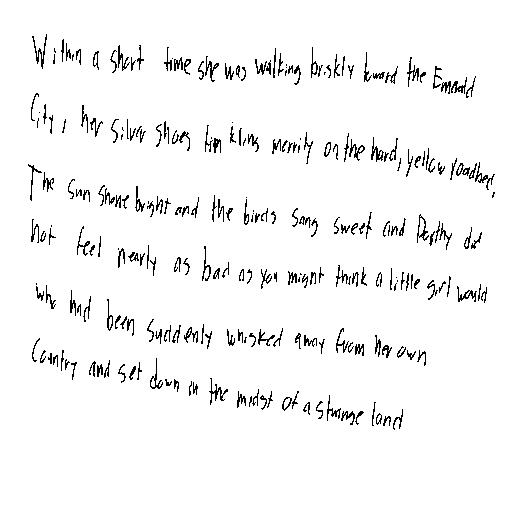 Within a short time she was walking briskly toward the Emerald
City, her silver shoes tinkling merrily on the hard, yellow roadbed.
The sun shone bright and the birds sang sweet and Dorothy did
not feel nearly as bad as you might think a little girl would
who had been suddenly whisked away from her own
country and set down in the midst of a strange land